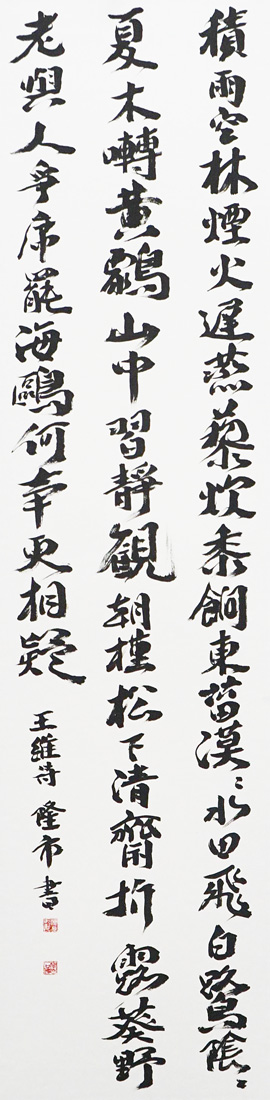 積雨空林煙火遲蒸藜炊黍餉東菑漠〻水田飛白鷺陰〻
夏木囀黃鸝山中習靜觀朝槿松下清齋折露葵野
老與人爭席罷海鷗何事更相疑
王維詩 隆市書